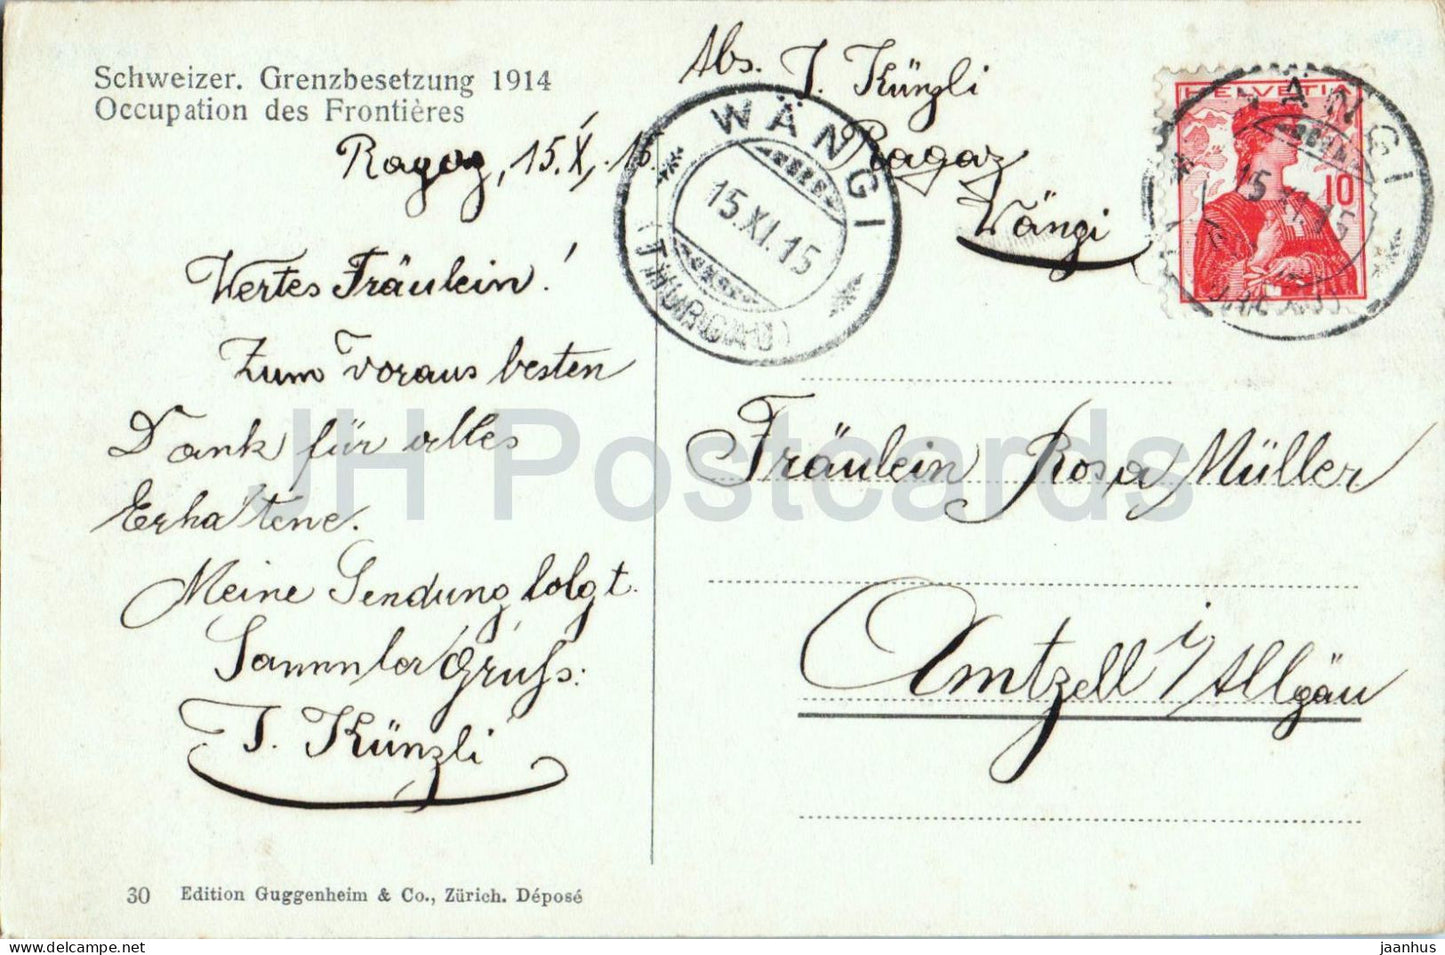 Schweizer. Grenzbesetzung 1914
Occupation des Frontières
Ragaz, 15.X. 15
Wertes Fräulein!
Zum voraus besten
Dank für alles
Erhaltene.
Meine Sendung folgt.
Sammler Gruß:
J. Künzli
30 Edition Guggenheim & Co., Zürich. Déposé
Abs. J. Künzli
Ragaz
Wängi
WÄNGI
15.XI.15
(THURGAU)
HELVETIA
10
WÄNGI
15.XI.15
Fräulein Rosa Müller
Amtzell i/Allgäu
JH Postcards
jaanhus